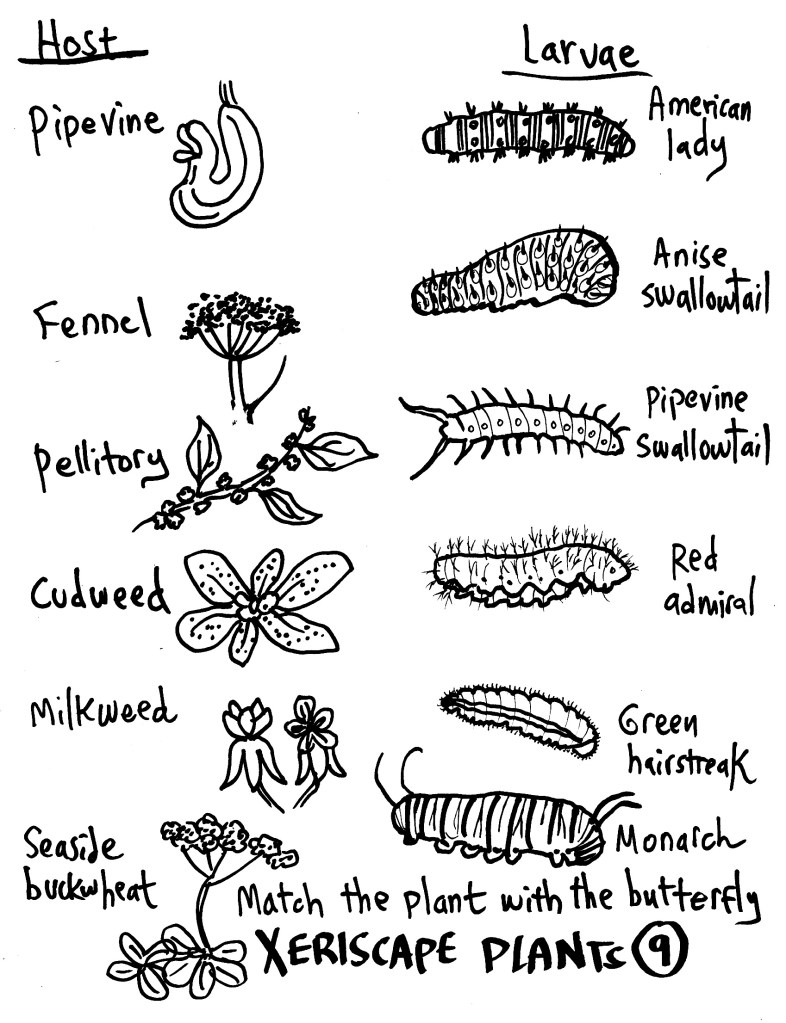 Host
Larvae
Pipevine
American
lady
Anise
swallowtail
Fennel
Pipevine
swallowtail
Pellitory
Red
admiral
Cudweed
Milkweed
Green
hairstreak
Monarch
Seaside
buckwheat
Match the plant with the butterfly
XERISCAPE PLANTS 9